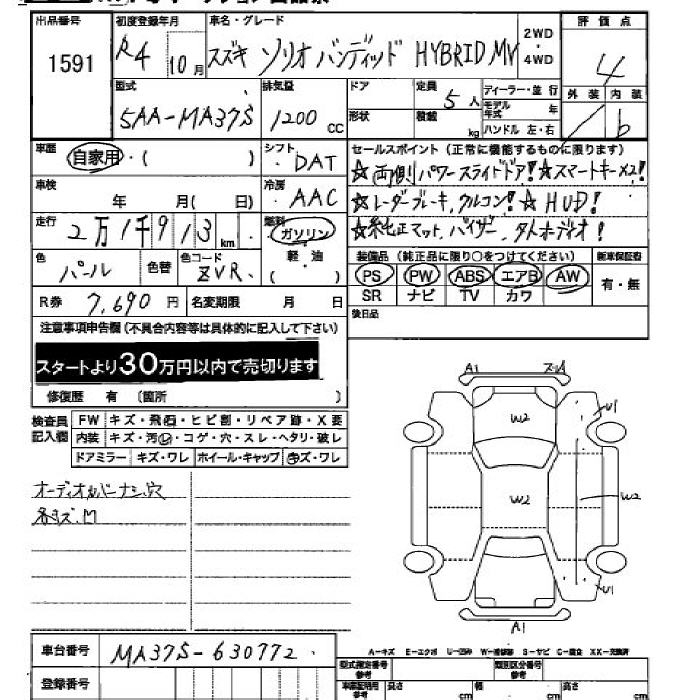 出品番号 初度登録年月 車名・グレード 2WD・4WD 評価点
1591 R4 10月 スズキ ソリオ バンディッド HYBRID MV 4
型式 排気量 ドア 定員 5人 ディーラー・並行 外装 内装
5AA-MA37S 1200cc 形状 積載 kg モデル年式 年 ハンドル 左・右 b
車歴 自家用・( ) シフト DAT セールスポイント (正常に機能するものに限ります)
☆両側パワースライドドア!☆スマートキーX2!
車検 年 月( 日) 冷房 AAC ☆レーダーブレーキ,クルコン!☆HUD!
走行 2万1千913km 燃料 ガソリン ☆純正マット,バイザー,
軽・油 ( ) 装備品 (純正品に限り○をつけてください) 新車保証書
色 パール 色替 色コード ZVR PS PW ABS エアB AW 有・無
R券 7,690円 名変期限 月 日 SR ナビ TV カワ
注意事項申告欄(不具合内容等は具体的に記入して下さい) 後日品
スタートより30万円以内で売切ります
修復歴 有 (箇所 )
検査員記入欄 FW キズ・飛石・ヒビ割・リペア跡・X要
内装 キズ・汚・コゲ・穴・スレ・ヘタリ・破レ
ドアミラー キズ・ワレ ホイール・キャップ キズ・ワレ
A1
W2 U1
オーディオカバーナシ,穴
各キズ.M
W2 W2
U1
A1
車台番号 MA37S-630772
A-キズ E-エクボ U-凹み W-補修跡 S-サビ C-腐食 XX-交換済
登録番号 型式指定番号 参考 類別区分番号 参考
車庫証明用 参考 長さ cm 幅 cm 高さ cm